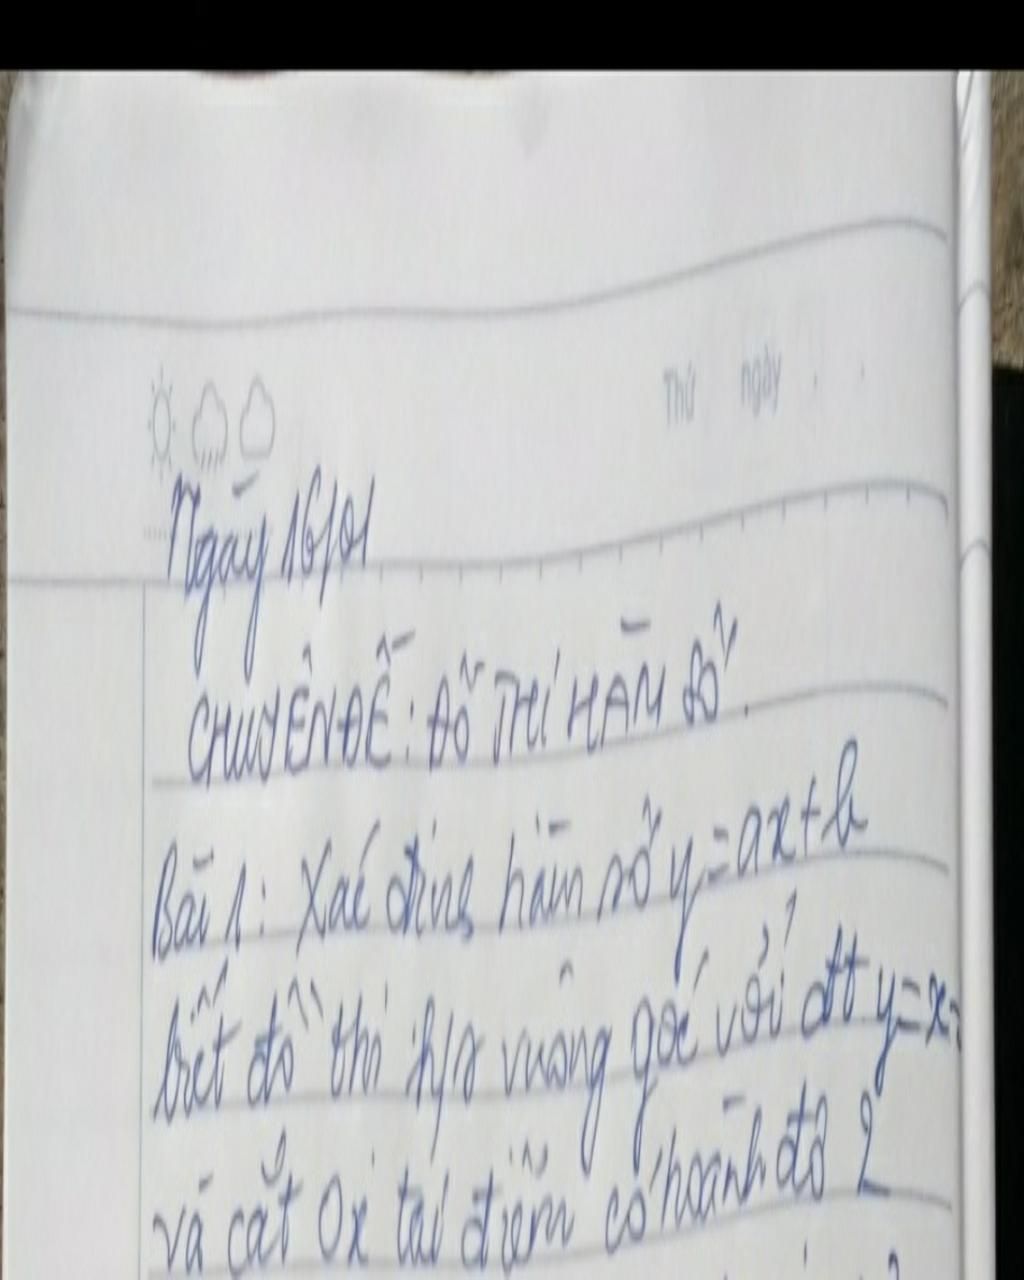 Thứ ngày
Ngày 16/01
CHUYÊN ĐỀ: ĐỒ THỊ HÀM SỐ.
Bài 1: Xác định hàm số y=ax+b
biết đồ thị h/s vuông góc với đt y=x
và cắt Ox tại điểm có hoành độ 2